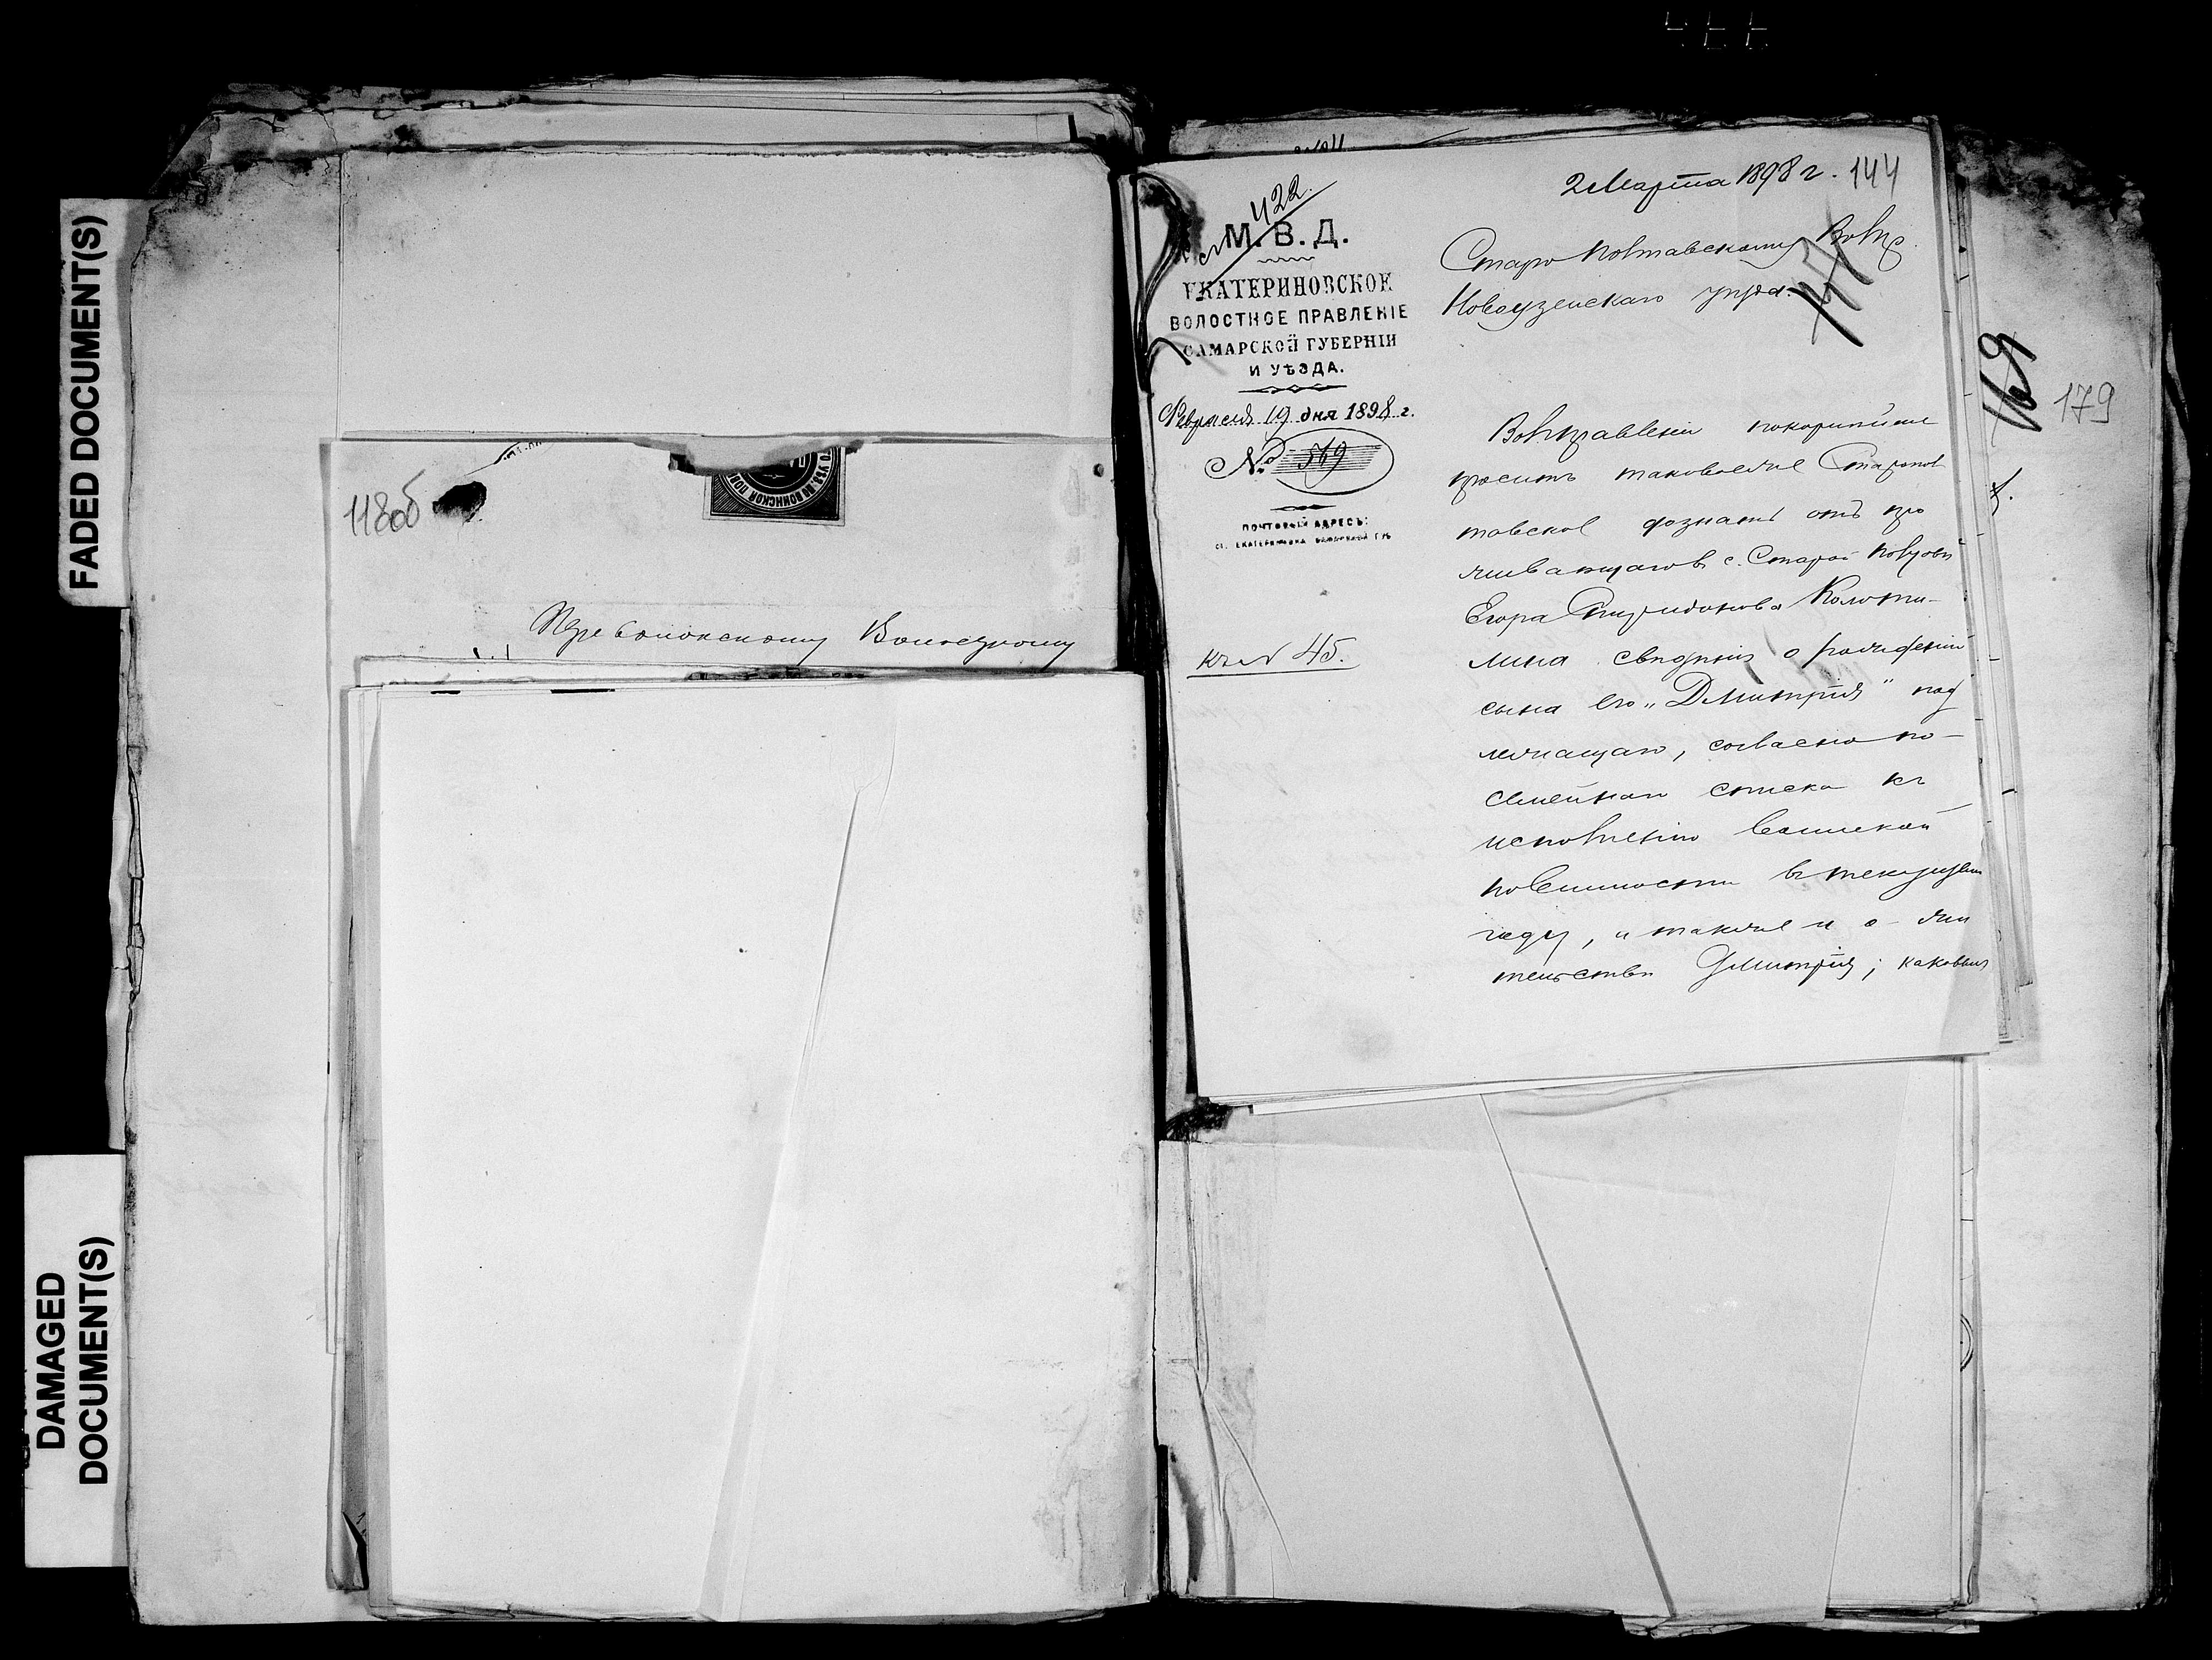 FADED DOCUMENT(S)
DAMAGED
DOCUMENT(S)
118об
Волостному
2 Марта 1898 г. 144
422
М. В. Д.
ЕКАТЕРИНОВСКОЕ
ВОЛОСТНОЕ ПРАВЛЕНІЕ
САМАРСКОЙ ГУБЕРНІИ
И УѢЗДА.
Февраля 19 дня 1898 г.
№ 569
ПОЧТОВЫЙ АДРЕСЪ:
ст. ЕКАТЕРИНОВКА САМАРСКОЙ ГУБ
къ № 45.
Старо Полтавскому
Новоузенскаго уѣзда.
Волправленіе покорнѣйше
проситъ таковое же Старопол
тавское дознать отъ про
живающаго въ с. Старой Полтавкѣ
Егора Спиридонова Колоти-
лина свѣдѣнія о рожденіи
сына его „Дмитрія" под
лежащаго, согласно по-
семейнаго списка къ
исполненію воинской
повинности въ текущемъ
году, а также и о жи
тельствѣ Дмитрія; каковыя
169
179